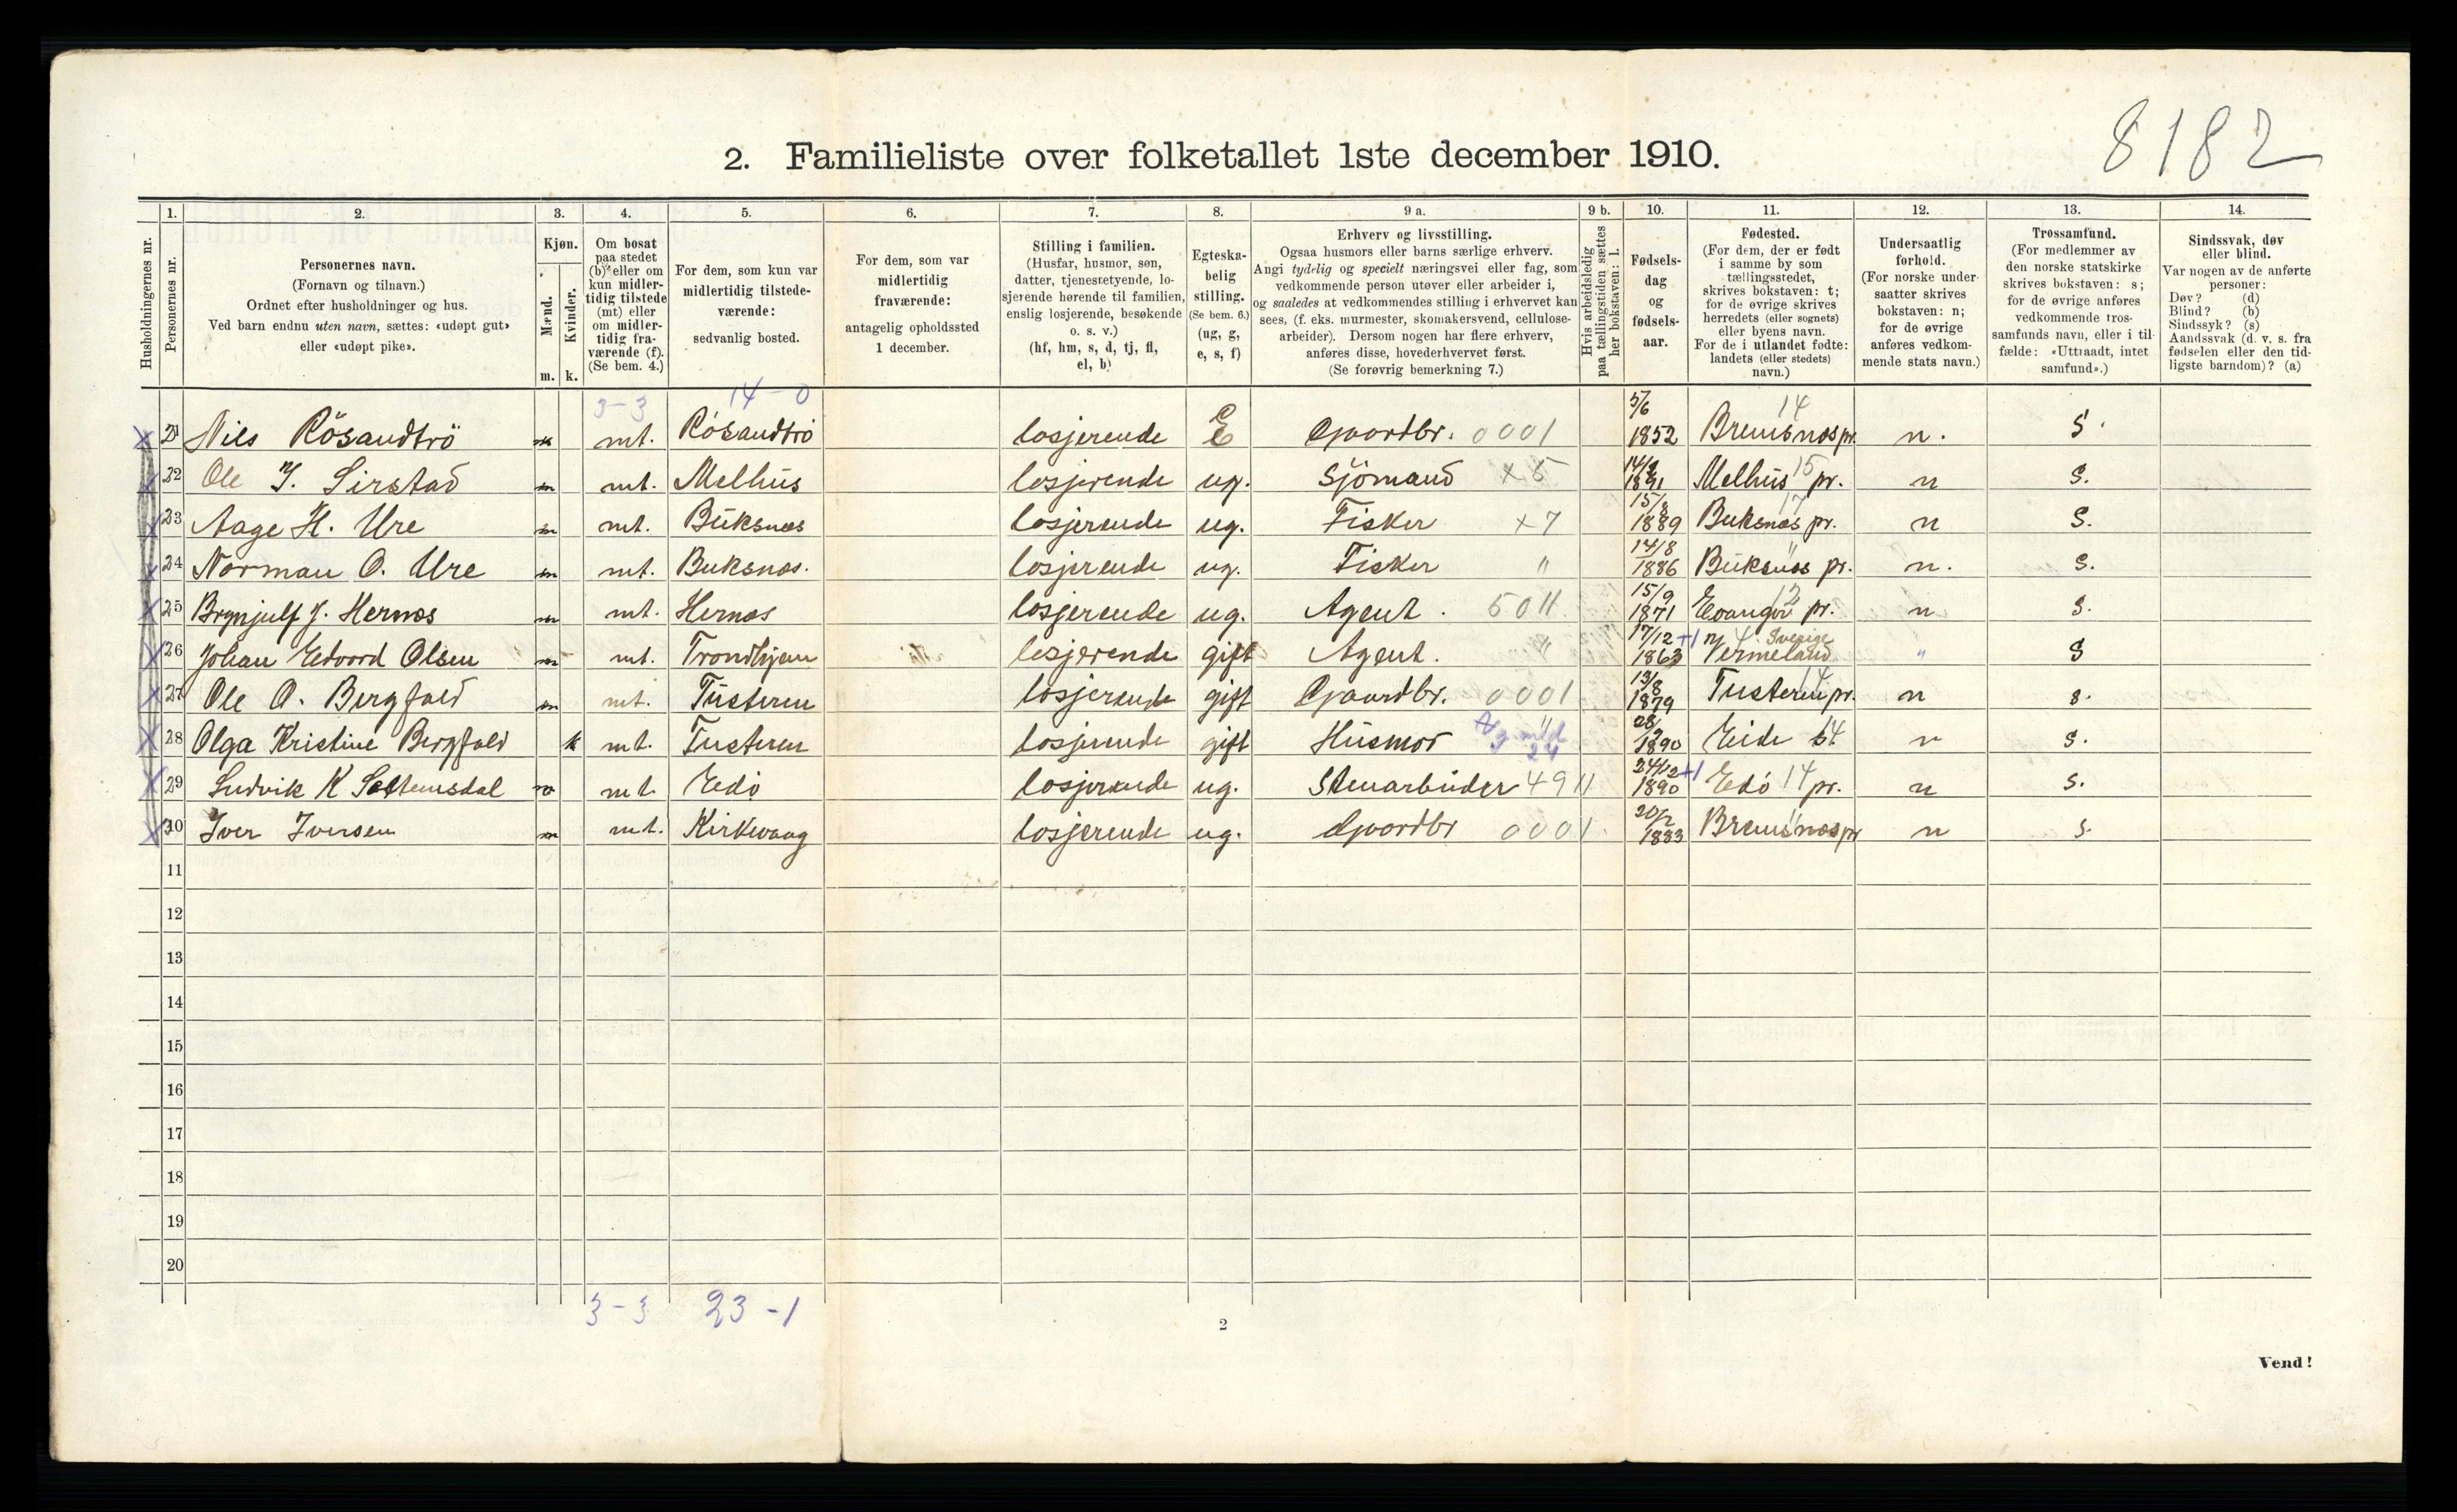 8182
2. Familieliste over folketallet 1ste december 1910.
Husholdningernes nr.
1. Personernes nr.
2. Personernes navn.
(Fornavn og tilnavn.)
Ordnet efter husholdninger og hus.
Ved barn endnu uten navn, sættes: «udøpt gut»
eller «udøpt pike».
3. Kjøn.
Mænd. m.
Kvinder. k.
4. Om bosat
paa stedet
(b) eller om
kun midler-
tidig tilstede
(mt) eller
om midler-
tidig fra-
værende (f).
(Se bem. 4.)
5. For dem, som kun var
midlertidig tilstede-
værende:
sedvanlig bosted.
6. For dem, som var
midlertidig
fraværende:
antagelig opholdssted
1 december.
7. Stilling i familien.
(Husfar, husmor, søn,
datter, tjenestetyende, lo-
sjerende hørende til familien,
enslig losjerende, besøkende
o. s. v.)
(hf, hm, s, d, tj, fl,
el, b)
8. Egteska-
belig
stilling.
(Se bem. 6.)
(ug, g,
e, s, f)
9 a. Erhverv og livsstilling.
Ogsaa husmors eller barns særlige erhverv.
Angi tydelig og specielt næringsvei eller fag, som
vedkommende person utøver eller arbeider i,
og saaledes at vedkommendes stilling i erhvervet kan
sees, (f. eks. murmester, skomakersvend, cellulose-
arbeider). Dersom nogen har flere erhverv,
anføres disse, hovederhvervet først.
(Se forøvrig bemerkning 7.)
9 b. Hvis arbeidsledig
paa tællingstiden sættes
her bokstaven: l.
10. Fødsels-
dag
og
fødsels-
aar.
11. Fødested.
(For dem, der er født
i samme by som
tællingsstedet,
skrives bokstaven: t;
for de øvrige skrives
herredets (eller sognets)
eller byens navn.
For de i utlandet fødte:
landets (eller stedets)
navn.)
12. Undersaatlig
forhold.
(For norske under-
saatter skrives
bokstaven: n;
for de øvrige
anføres vedkom-
mende stats navn.)
13. Trossamfund.
(For medlemmer av
den norske statskirke
skrives bokstaven: s;
for de øvrige anføres
vedkommende tros-
samfunds navn, eller i til-
fælde: «Uttraadt, intet
samfund».)
14. Sindssvak, døv
eller blind.
Var nogen av de anførte
personer:
Døv? (d)
Blind? (b)
Sindssyk? (s)
Aandssvak (d. v. s. fra
fødselen eller den tid-
ligste barndom)? (a)
3-3 14-0
21 Nils Rösandtrö m mt. Rösandtrö losjerende E Gaardbr. 0001 5/6 1852 Bremsnæs pr. 14 n. S.
22 Ole J. Sirstad m mt. Melhus losjerende ug. Sjömand x5 1891 Melhus pr. 15 n S.
23 Aage H. Ure m mt. Buksnæs losjerende ug. Fisker x7 15/8 1889 Buksnæs pr. 17 n S.
24 Norman O. Ure m mt. Buksnæs. losjerende ug. Fisker " 14/8 1886 Buksnæs pr. " n. S.
25 Brynjulf J. Hernæs m mt. Hernæs losjerende ug. Agent. 5011 15/9 1871 Evanger pr. 12 n S.
26 Johan Edvard Olsen m mt. Trondhjem losjerende gift Agent. " 17/12 1863 +1 Vermeland Sverige " S
27 Ole O. Bergfald m mt. Tusteren losjerende gift Gaardbr. 0001 13/8 1879 Tusteren pr. 14 n s.
28 Olga Kristine Bergfald k mt. Tusteren losjerende gift Husmor " 24 1890 Eide 14 n s.
29 Ludvik K Settemsdal m mt. Edö losjerende ug. Stenarbeider 4911 24/12 1890 +1 Edö 14 pr. n s.
30 Iver Iversen m mt. Kirkevaag losjerende ug. Gaardbr 0001. 20/2 1883 Bremsnæs pr " n s.
11
12
13
14
15
16
17
18
19
20
3-3 23-1
2
Vend!